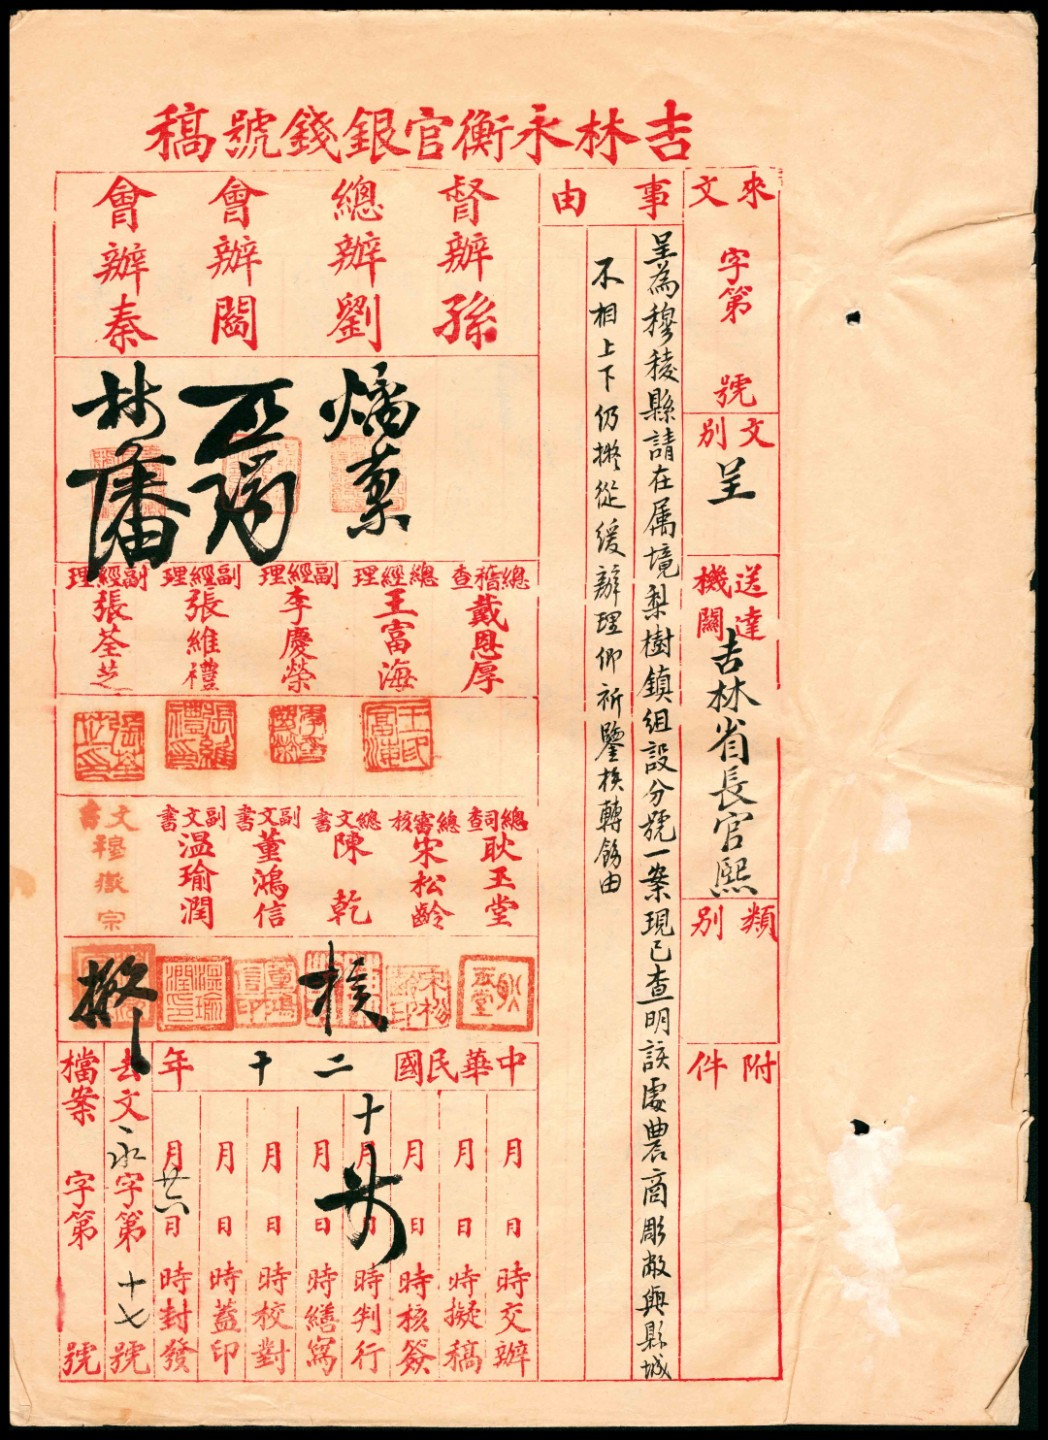 吉林永衡官銀錢號稿
來文
字第　號
文別
呈
送達機關
吉林省長官熙
類別
附件
事由
呈為穆稜縣請在属境梨樹鎮組設分號一案現已查明該處農商彫敝與縣城
不相上下仍擬從緩辦理仰祈鑒核轉飭由
督辦孫
總辦劉
燏棻
會辦閻
會辦秦
總稽查
戴恩厚
總經理
王富海
副經理
李慶榮
副經理
張維禮
副經理
張荃芝
總司查
耿玉堂
總審核
宋松齡
總文書
陳乾
核
副文書
董鴻信
副文書
溫瑜潤
文書
穆徵宗
擬
中華民國二十年
月　日　時交辦
月　日　時擬稿
月　日　時核簽
十月　日　時判行
月　日　時繕寫
月　日　時校對
月　日　時蓋印
月廿六日　時封發
去文永字第十七號
檔案　字第　號